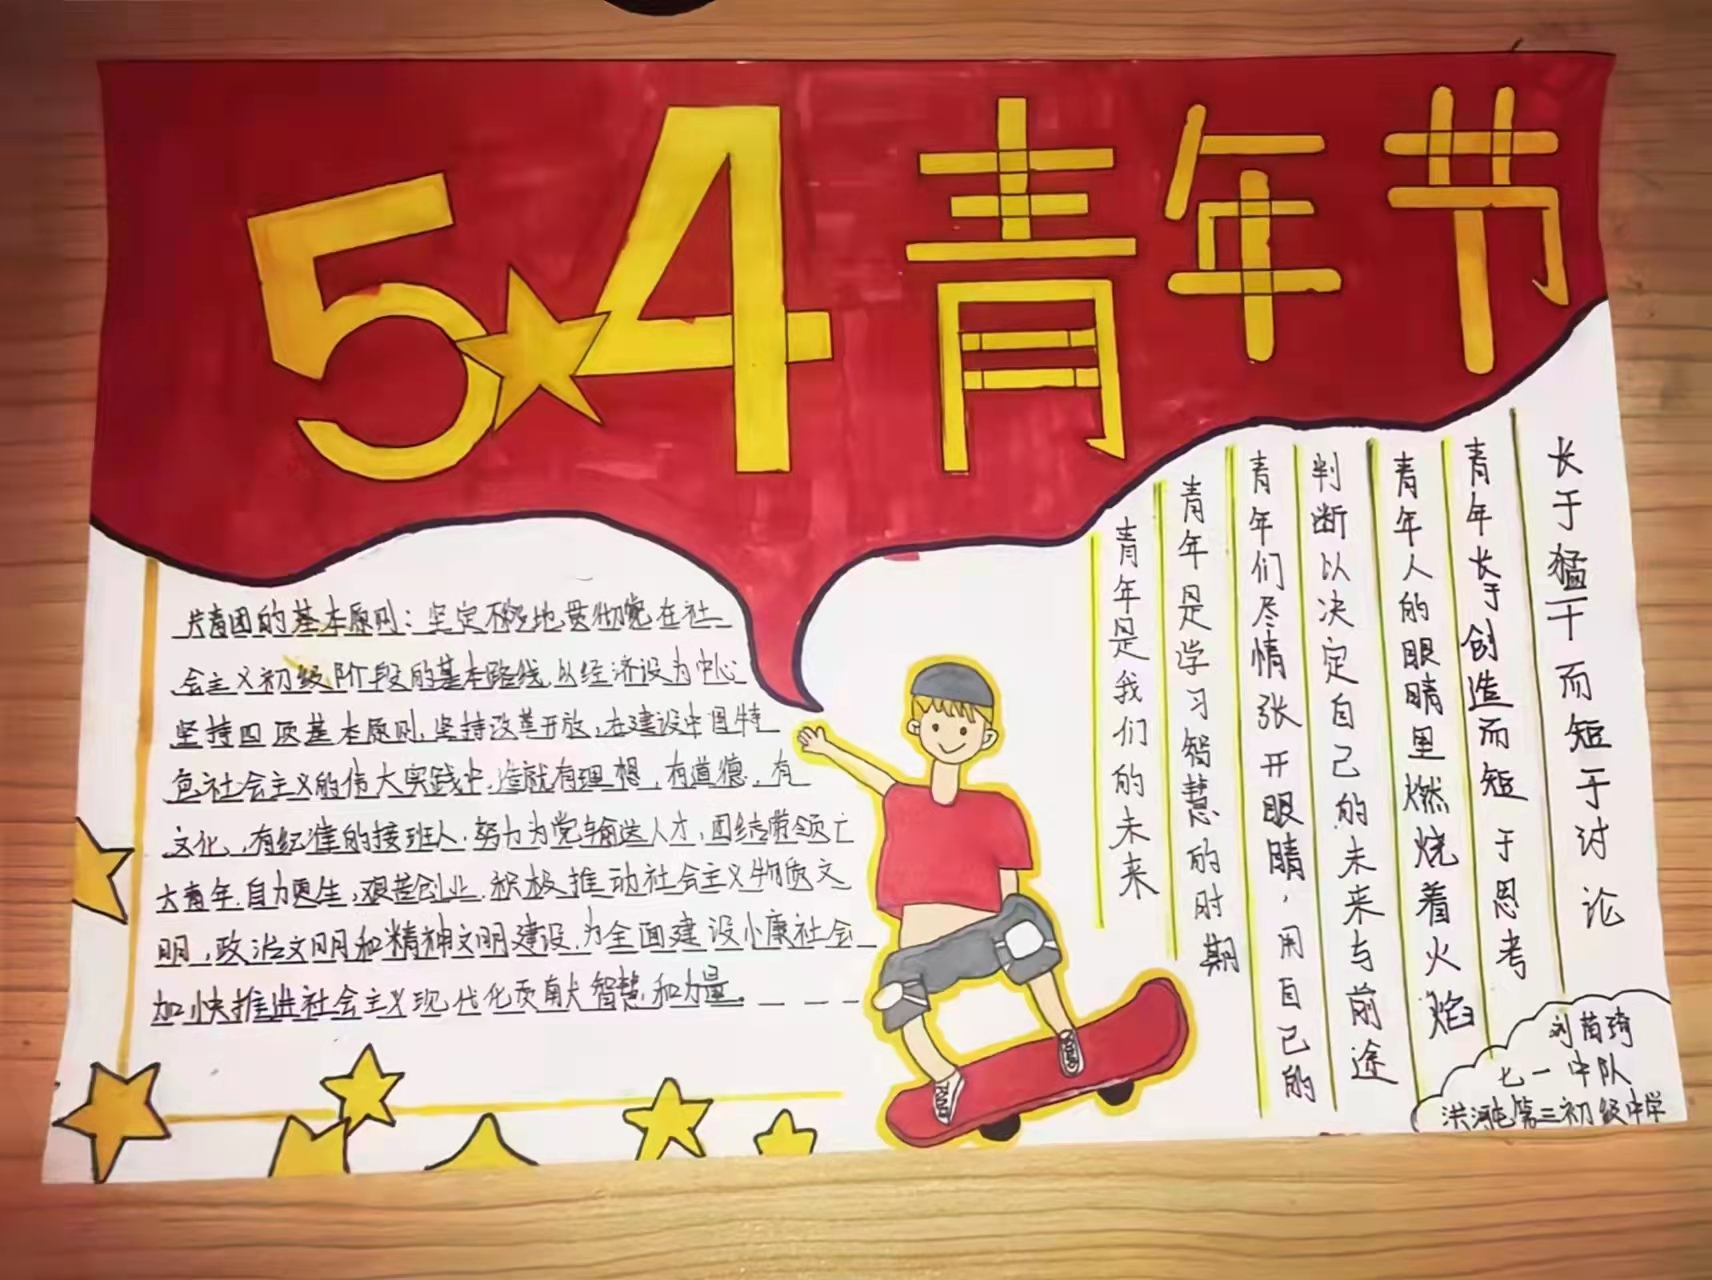 5★4 青年节
共青团的基本原则：坚定不移地贯彻党在社
会主义初级阶段的基本路线，以经济设为中心
坚持四项基本原则，坚持改革开放，在建设中国特
色社会主义的伟大实践中，造就有理想，有道德，有
文化，有纪律的接班人，努力为党输送人才，团结带领广
大青年，自力更生，艰苦创业，积极推动社会主义物质文
明，政治文明和精神文明建设，为全面建设小康社会
加快推进社会主义现代化贡献智慧和力量。
青年是我们的未来
青年是学习智慧的时期
青年们尽情张开眼睛，用自己的
判断以决定自己的未来与前途
青年人的眼睛里燃烧着火焰
青年长于创造而短于思考
长于猛干而短于讨论
七一中队
第三初级中学